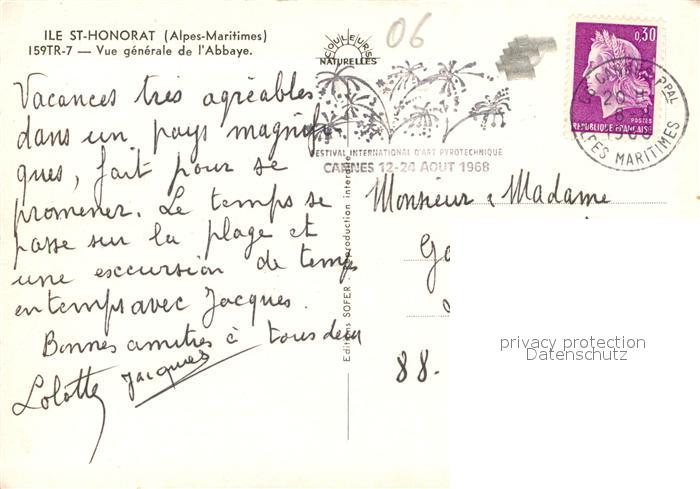 ILE ST-HONORAT (Alpes-Maritimes)
159TR-7 — Vue générale de l'Abbaye.
COULEURS
NATURELLES
06
0,30
POSTES
REPUBLIQUE FRANÇAISE
CANNES PPAL
20
8
1968
ALPES MARITIMES
FESTIVAL INTERNATIONAL D'ART PYROTECHNIQUE
CANNES 12-24 AOUT 1968
Vacances très agréables
dans un pays magnifi
ques, fait pour se
promener. Le temps se
passe sur la plage et
une excursion de temps
en temps avec Jacques.
Bonnes amitiés à tous deux
Lolotte Jacques
Editions SOFER - Reproduction interdite
Monsieur & Madame
88.
privacy protection
Datenschutz